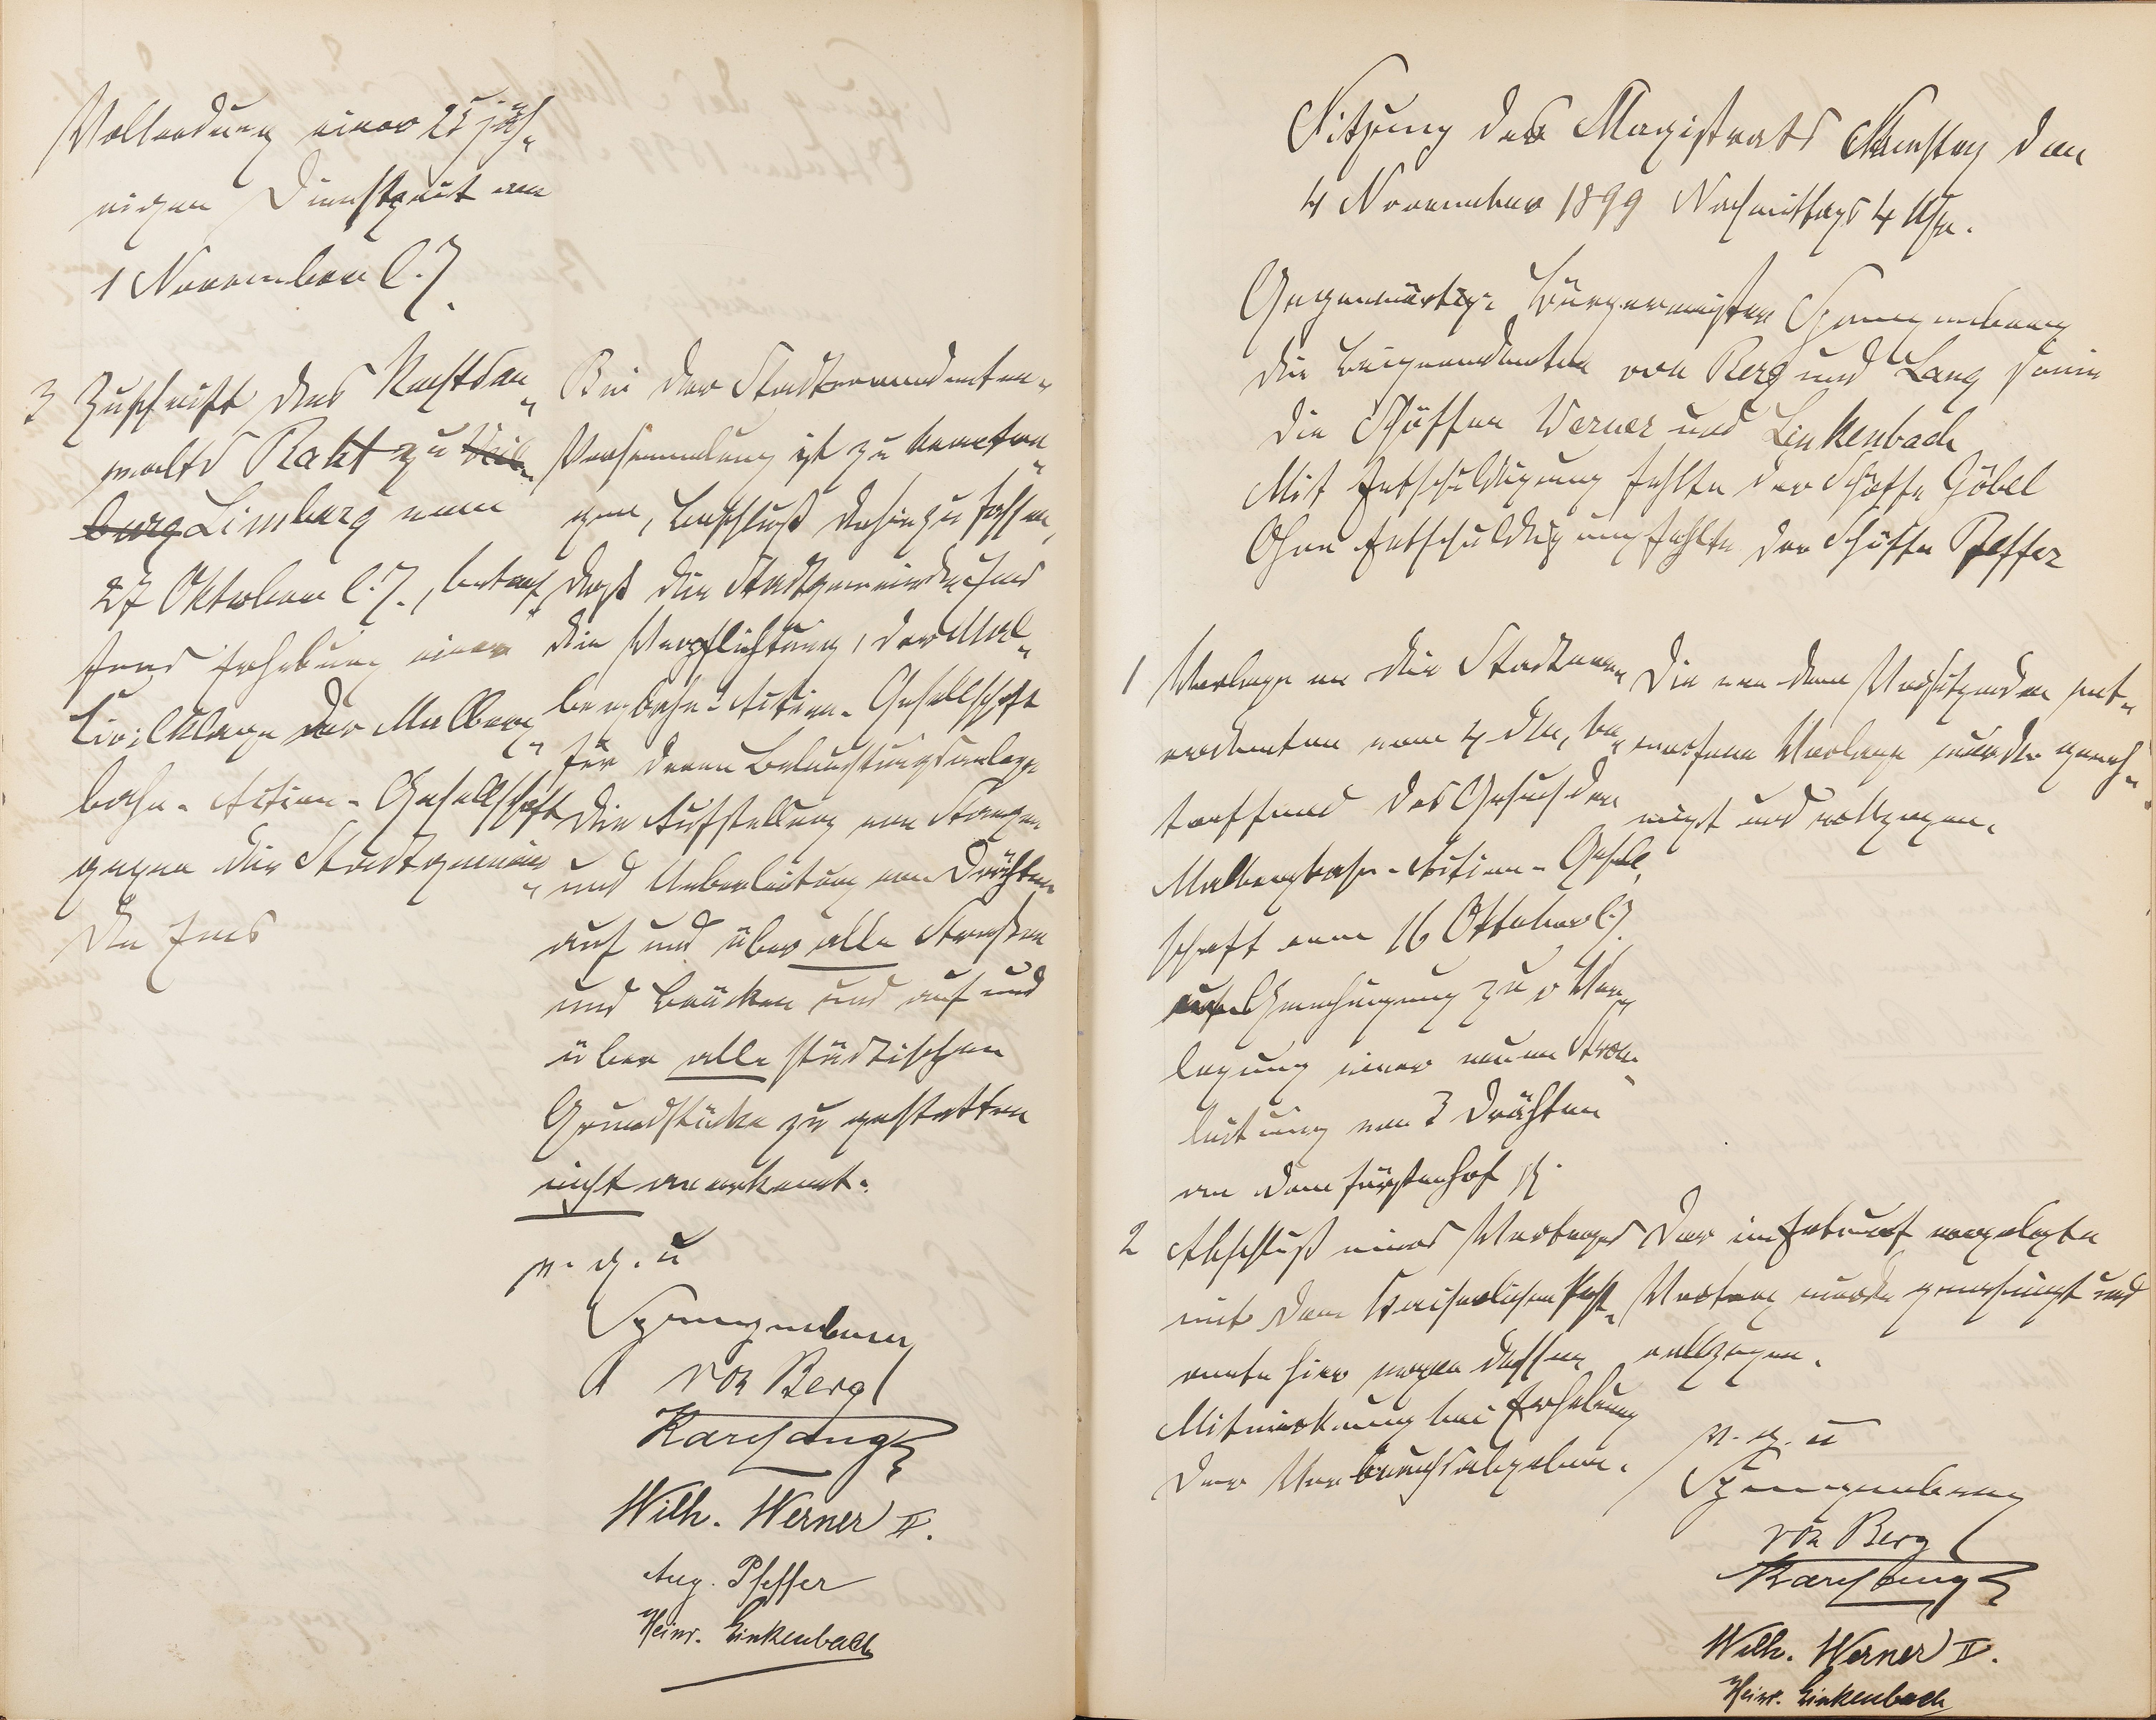 Vollendung einer 25 jäh-
rigen Dienstzeit am
1 November l. J.
3 Zuschrift des Rechtsan-
walts Raht zu Weil-
burg Limburg vom
27 Oktober l. J., betref-
fend Erhebung einer
Civilklage der Malberg-
bahn-Actien-Gesellschaft
gegen die Stadtgemein-
de Ems
Bei der Stadtverordneten-
Versammlung ist zu beantra-
gen, Beschluß dahin zu fassen,
daß die Stadtgemeinde Ems
die Verpflichtung, der Mal-
bergbahn-Actien-Gesellschaft
für deren Beleuchtungsanlage
die Aufstellung von Stangen
und Ueberleitung von Drähten
auf und über alle Straßen
und Brücken und auf und
über alle städtischen
Grundstücke zu gestatten
nicht anerkennt.
v. g. u
Spangenberg
von Berg
Karl Lang
Wilh. Werner II.
Aug. Pfeffer
Heinr. Linkenbach
Sitzung des Magistrats Samstag den
4 November 1899 Nachmittags 4 Uhr.
Gegenwärtig: Bürgermeister Spangenberg
die Beigeordneten von Berg und Lang sowie
die Schöffen Werner und Linkenbach
Mit Entschuldigung fehlte der Schöffe Göbel
Ohne Entschuldigung fehlte der Schöffe Pfeffer
1 Vorlage an die Stadtver-
ordneten vom 4 d. M., be-
treffend das Gesuch der
Malbergbahn-Actien-Gesell-
schaft vom 16 Oktober l. J.
um Genehmigung zur Ver-
legung einer neuen Strom-
leitung von 3 Drähten
an dem Fürstenhof pp.
Die von dem Vorsitzenden ent-
worfene Vorlage wurde geneh-
migt und vollzogen.
2 Abschluß eines Vertrages
mit dem Kaiserlichen Post-
amte hier wegen dessen
Mitwirkung bei Erhebung
der Verbrauchsabgaben.
Der im Entwurf vorgelegte
Vertrag wurde genehmigt und
vollzogen.
v. g. u
Spangenberg
von Berg
Karl Lang
Wilh. Werner II.
Heinr. Linkenbach